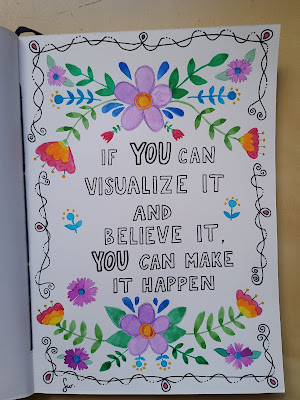 IF YOU CAN
VISUALIZE IT
AND
BELIEVE IT,
YOU CAN MAKE
IT HAPPEN